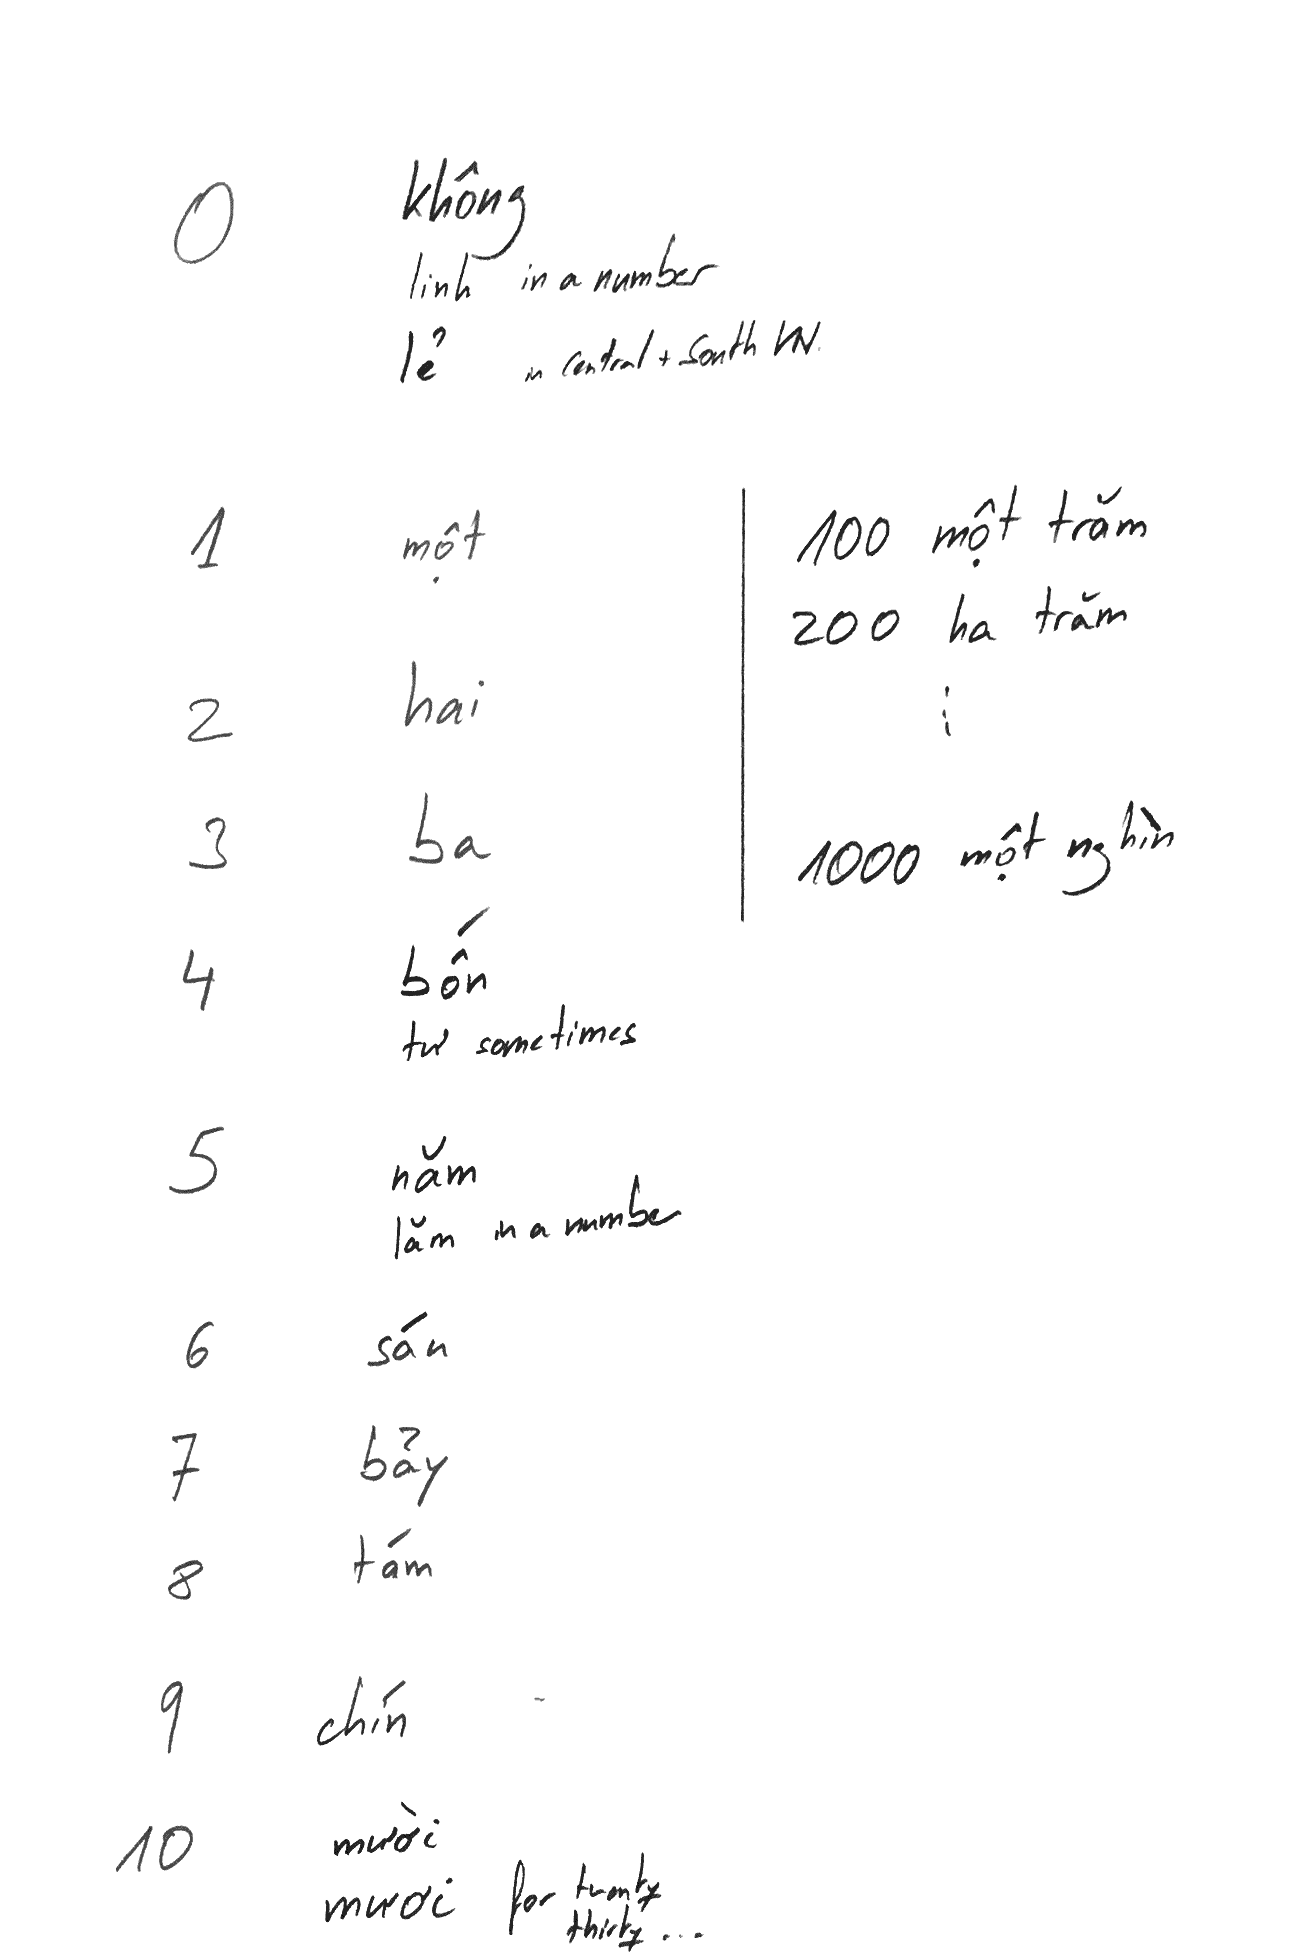 0 không
linh in a number
lẻ in central + South VN.
1 một
2 hai
3 ba
4 bốn
tư sometimes
5 năm
lăm in a number
6 sán
7 bảy
8 tám
9 chín
10 mười
mươi for twenty
thirty ...
100 một trăm
200 ha trăm
1000 một nghìn